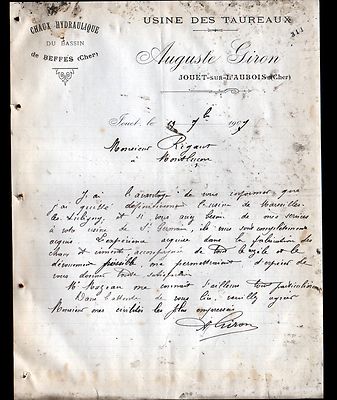 CHAUX HYDRAULIQUE
DU BASSIN
de BEFFES (Cher)
USINE DES TAUREAUX
Auguste Giron
JOUËT-SUR-L'AUBOIS (Cher)
Jouet, le 7bre 1907
Monsieur Rigaut
à Montluçon
J'ai l'avantage de vous informer que
j'ai quitté définitivement l'usine de Marseilles
les Aubigny, et si vous avez besoin de mes services
à votre usine de St Germain, ils vous sont complètement
acquis. L'expérience acquise dans la fabrication des
chaux et ciments, accompagnée de tout le zèle et le
dévouement possible, me permettraient d'espérer de
vous donner toute satisfaction
Mr Mozean me connait d'ailleurs tout particulièrement
Dans l'attente de vous lire, veuillez agréer
Monsieur mes civilités les plus empressées
A Giron